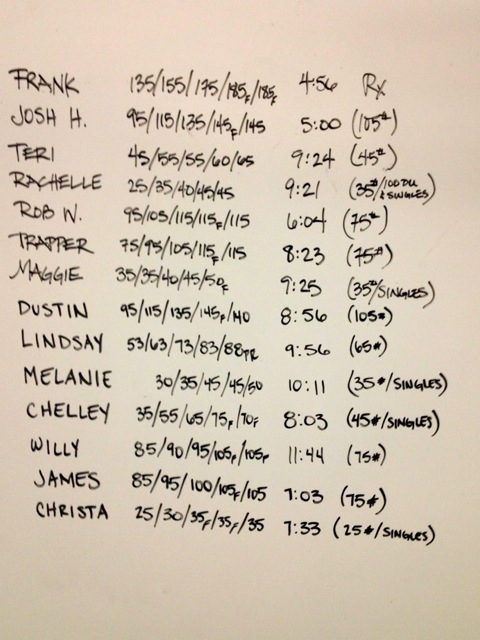 FRANK 135/155/175/185F/185F 4:56 Rx
JOSH H. 95/115/135/145F/145 5:00 (105#)
TERI 45/55/55/60/65 9:24 (45#)
RACHELLE 25/35/40/45/45 9:21 (35#/100DU & SINGLES)
ROB W. 95/105/115/115F/115 6:04 (75#)
TRAPPER 75/95/105/115F/115 8:23 (75#)
MAGGIE 35/35/40/45/50F 9:25 (35#/SINGLES)
DUSTIN 95/115/135/145F/140 8:56 (105#)
LINDSAY 53/63/73/83/88PR 9:56 (65#)
MELANIE 30/35/45/45/50 10:11 (35#/SINGLES)
CHELLEY 35/55/65/75F/70F 8:03 (45#/SINGLES)
WILLY 85/90/95/105F/105F 11:44 (75#)
JAMES 85/95/100/105F/105 7:03 (75#)
CHRISTA 25/30/35F/35F/35 7:33 (25#/SINGLES)